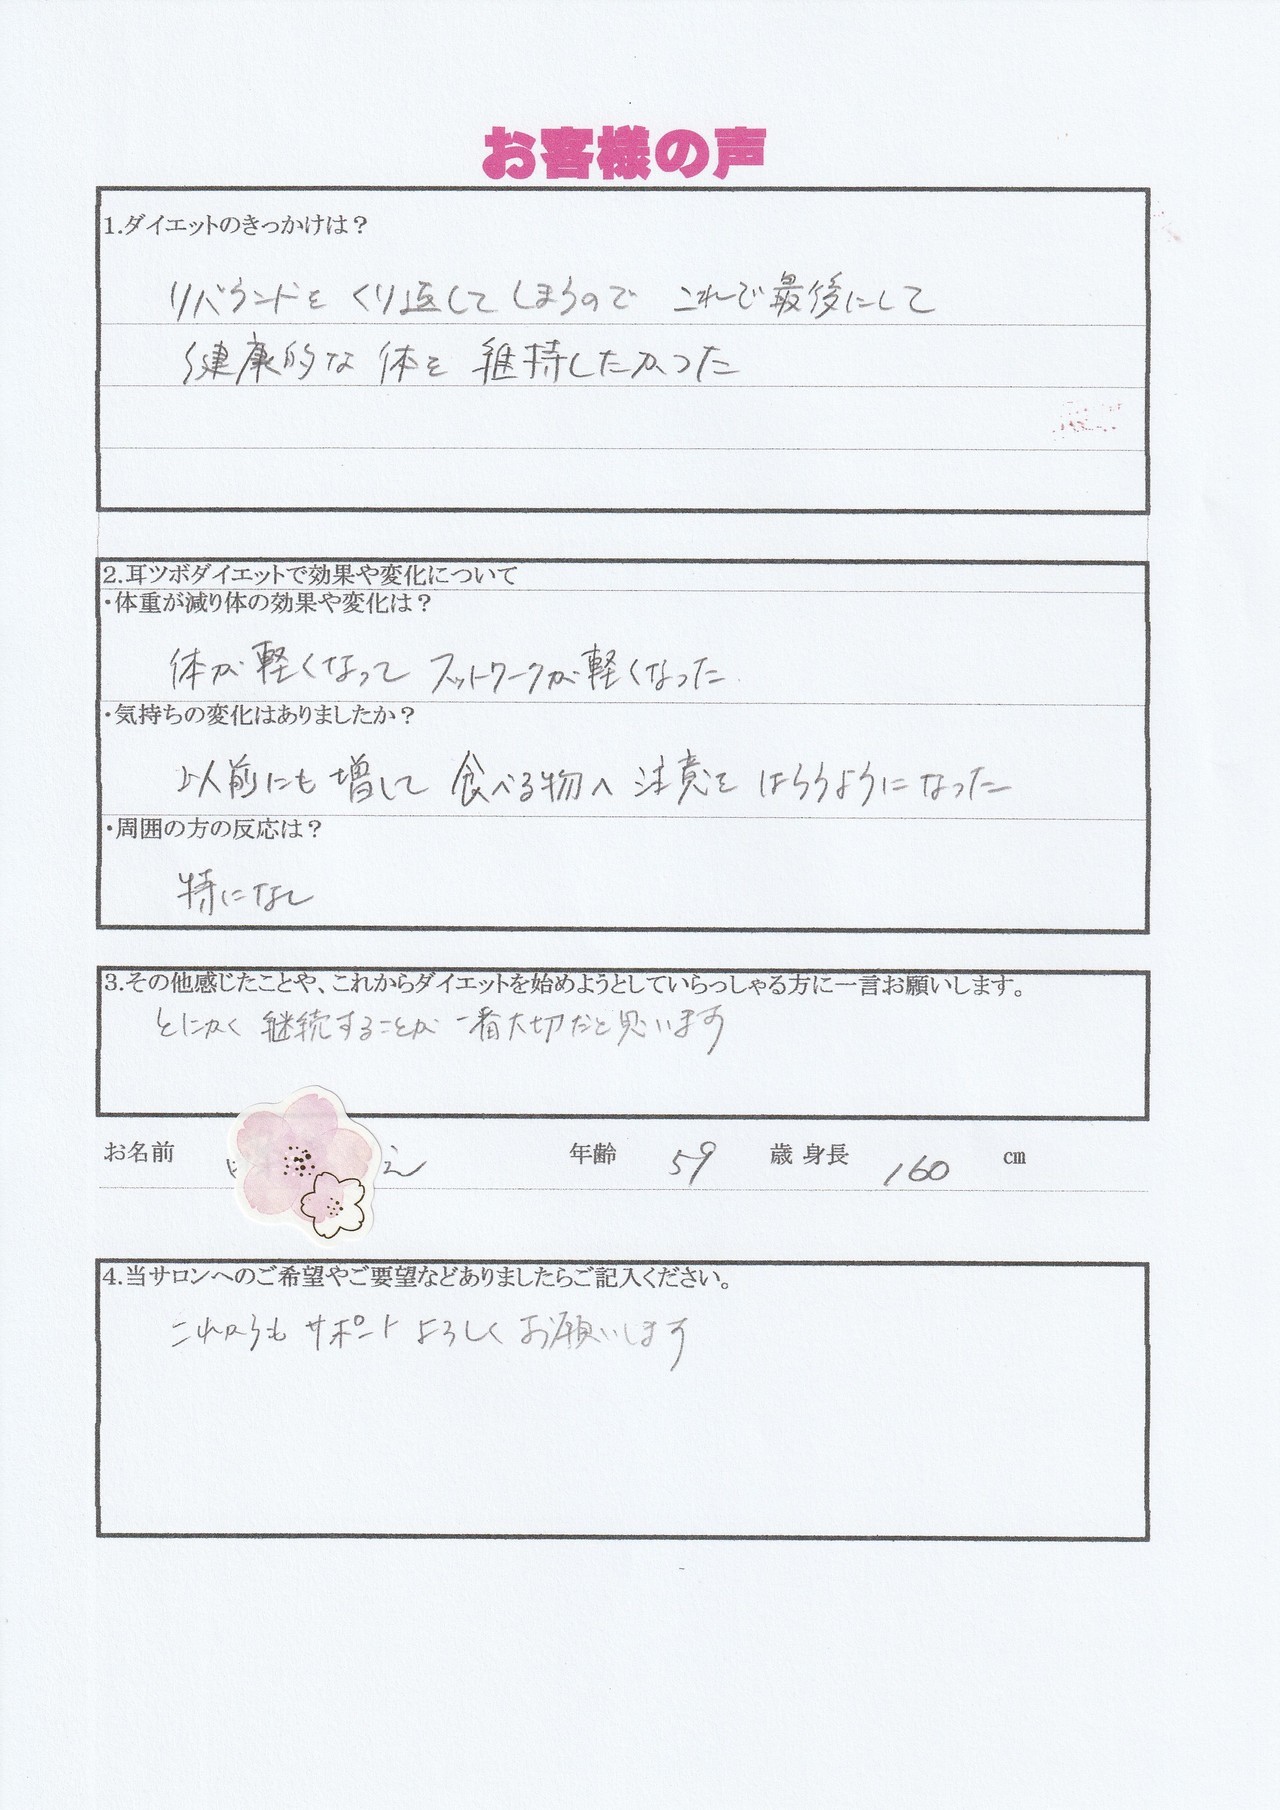 お客様の声
1.ダイエットのきっかけは？
リバウンドをくり返してしまうので これで最後にして
健康的な 体を 維持したかった
2.耳ツボダイエットで効果や変化について
・体重が減り体の効果や変化は？
体が軽くなって フットワークが軽くなった
・気持ちの変化はありましたか？
以前にも増して 食べる物へ 注意を はらうようになった
・周囲の方の反応は？
特になし
3.その他感じたことや、これからダイエットを始めようとしていらっしゃる方に一言お願いします。
とにかく 継続することが 一番大切だと思います
お名前 え 年齢 59 歳 身長 160 cm
4.当サロンへのご希望やご要望などありましたらご記入ください。
これからも サポート よろしく お願いします